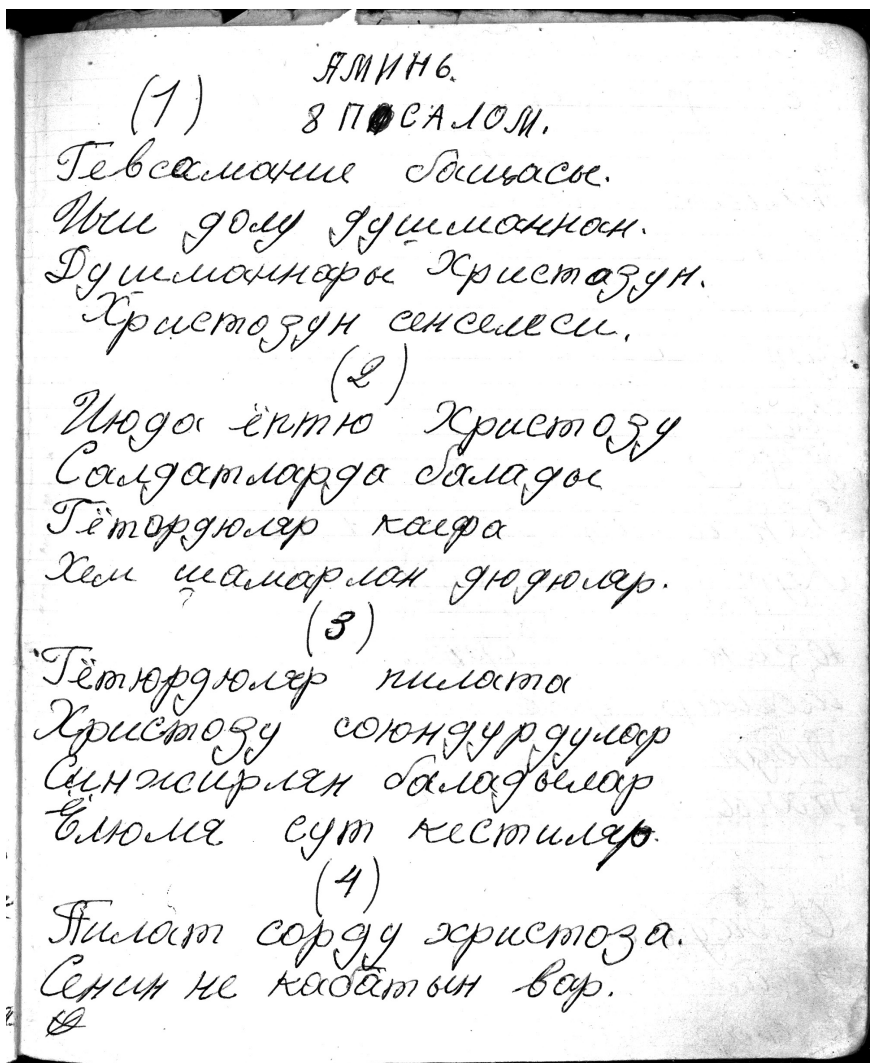 АМИНЬ.
(1)
8 ПОСАЛОМ.
Гевсамание башчасы.
Ичи долу душманнан.
Душманнары Христазун.
Христозун сенселеси.
(2)
Июда ёптю Христозу
Салдатларда балады
Гётордюляр каефа
Хем шамарлан дюдюляр.
(3)
Гётюрдюляр пилата
Христозу союндурдулар
Синжирлян баладылар
Ёлюмя сут кестиляр.
(4)
Пилат сорду христоза.
Сенин не кабатын вар.